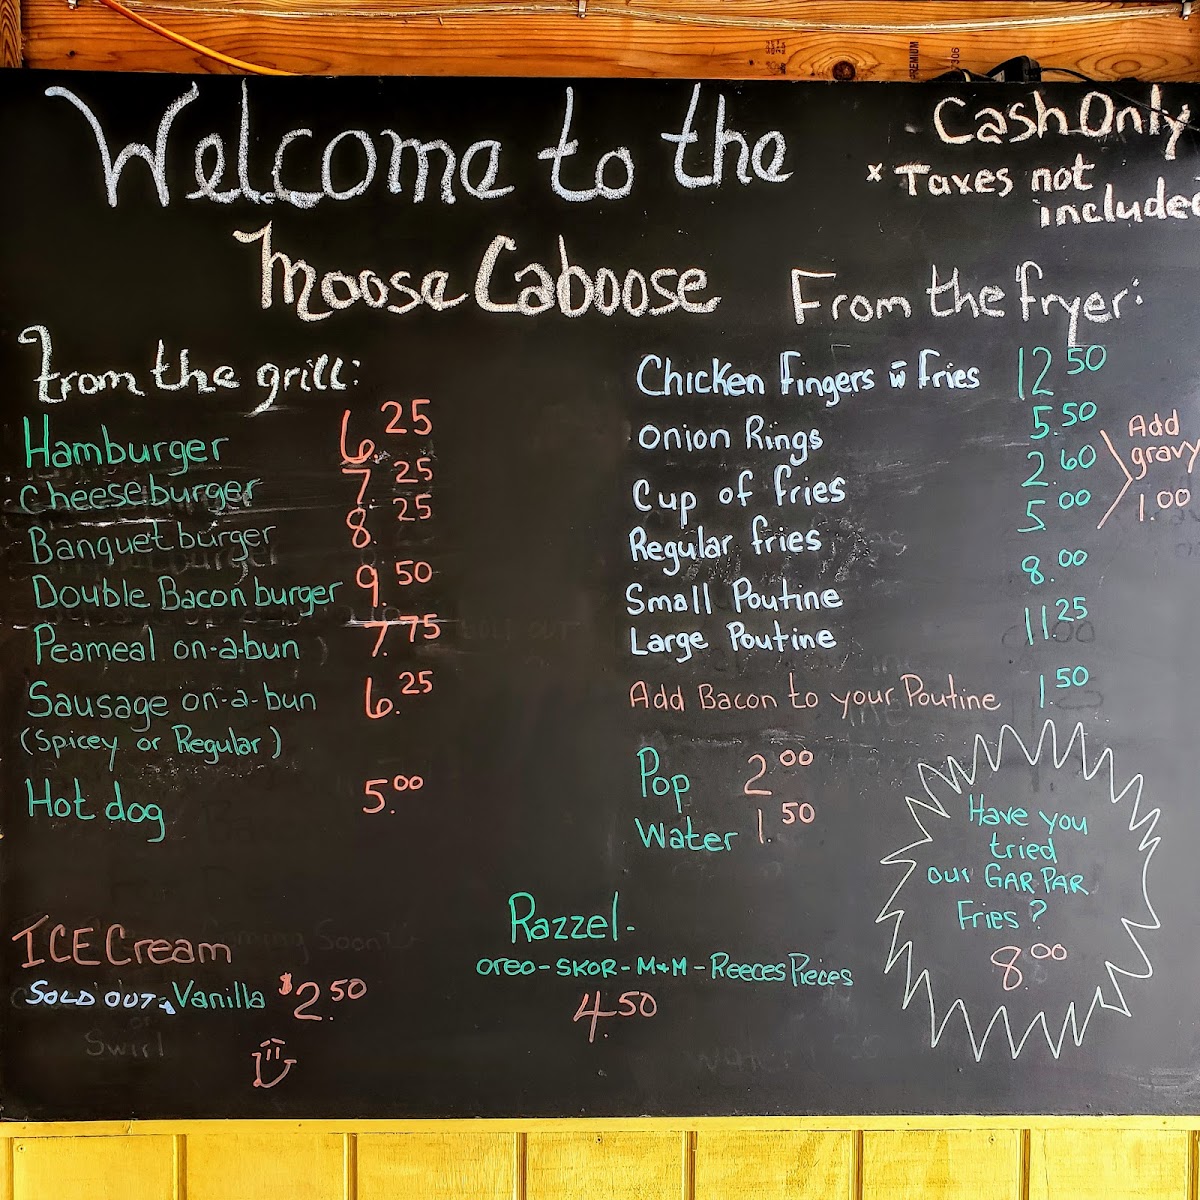 Welcome to the
Moose Caboose
Cash Only
* Taxes not
included
From the grill:
Hamburger 6.25
Cheeseburger 7.25
Banquet burger 8.25
Double Bacon burger 9.50
Peameal on-a-bun 7.75
Sausage on-a-bun 6.25
(Spicey or Regular)
Hot dog 5.00
From the fryer:
Chicken fingers w fries 12.50
Onion Rings 5.50
Cup of fries 2.60
Regular fries 5.00
Add
gravy
1.00
Small Poutine 8.00
Large Poutine 11.25
Add Bacon to your Poutine 1.50
Pop 2.00
Water 1.50
Have you
tried
our GAR PAR
Fries?
8.00
ICE Cream
SOLD OUT Vanilla $2.50
Swirl
Razzel-
Oreo-SKOR-M+M-Reeces Pieces
4.50